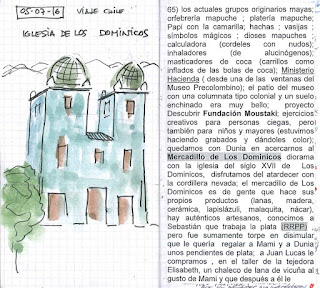 05-07-16 VIAJE CHILE
IGLESIA DE LOS DOMINICOS
65) los actuales grupos originarios mayas;
orfebrería mapuche ; platería mapuche;
Papi con la carmilla; hachas ; vasijas ;
símbolos mágicos ; dioses mapuches ;
calculadora (cordeles con nudos);
inhaladores (de alucinógenos);
masticadores de coca (carrillos como
inflados de las bolas de coca); Ministerio
Hacienda ( desde una de las ventanas del
Museo Precolombino); el patio del museo
con una columnata tipo colonial y un suelo
enchinado era muy bello; proyecto
Descubrir Fundación Moustaki; ejercicios
creativos para personas ciegas, pero
también para niños y mayores (estuvimos
haciendo grabados y dándoles color);
quedamos con Dunia en acercarnos al
Mercadillo de Los Dominicos diorama
con la iglesia del siglo XVII de Los
Dominicos, disfrutamos del atardecer con
la cordillera nevada; el mercadillo de Los
Dominicos es de gente que hace sus
propios productos (lanas, madera,
cerámica, lapislázuli, malaquita, nácar),
hay auténticos artesanos, conocimos a
Sebastián que trabaja la plata (RRPP)
pero fue sumamente torpe en disimular
que le quería regalar a Mami y a Dunia
unos pendientes de plata; a Juan Lucas le
compramos , en el taller de la tejedora
Elisabeth, un chaleco de lana de vicuña al
gusto de Mami y que después a él le